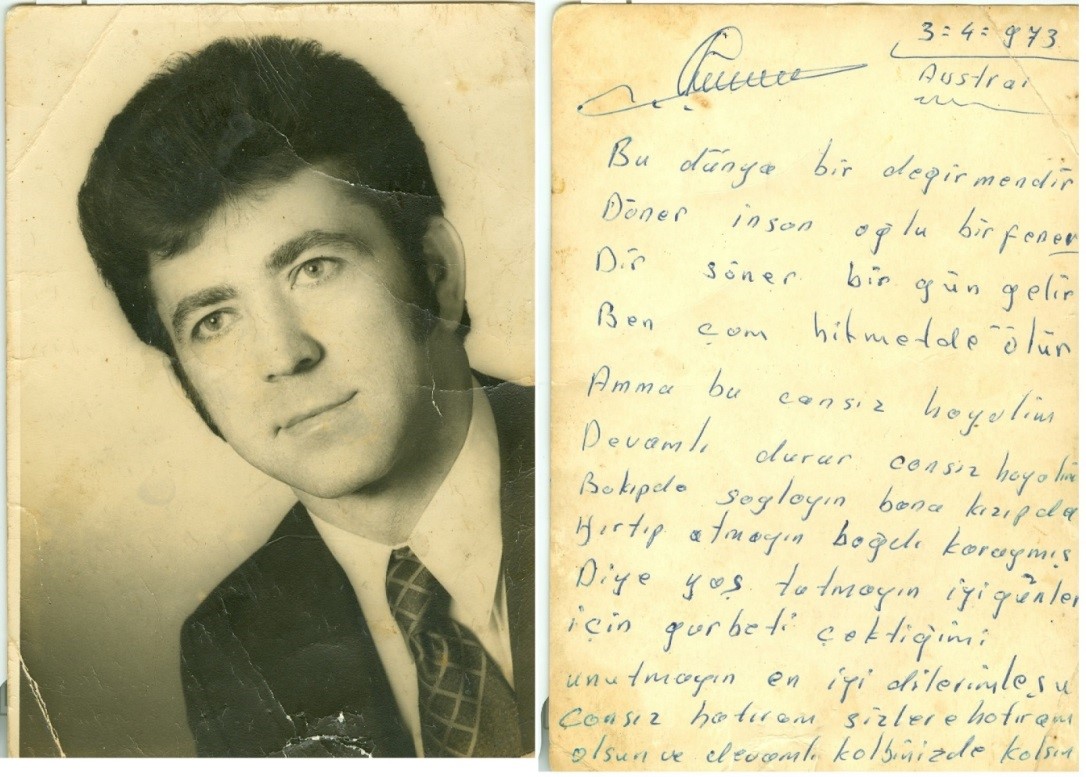 3=4=973
Austrai
Bu dünya bir degirmendir
Döner insan oğlu bir fener
Dir söner bir gün gelir
Ben çam hikmetde ölür
Amma bu cansız hayalim
Devamlı durar cansız hayalim
Bakıpda saglayın bana kızıpda
Yırtıp atmayın bağdı karaymış
Diye yaş tatmayın iyi günler
için gurbeti çektiğimi
unutmayın en iyi dilerimle şu
Cansız hatıram sizlere hatıram
olsun ve devamlı kalbinizde kalsın